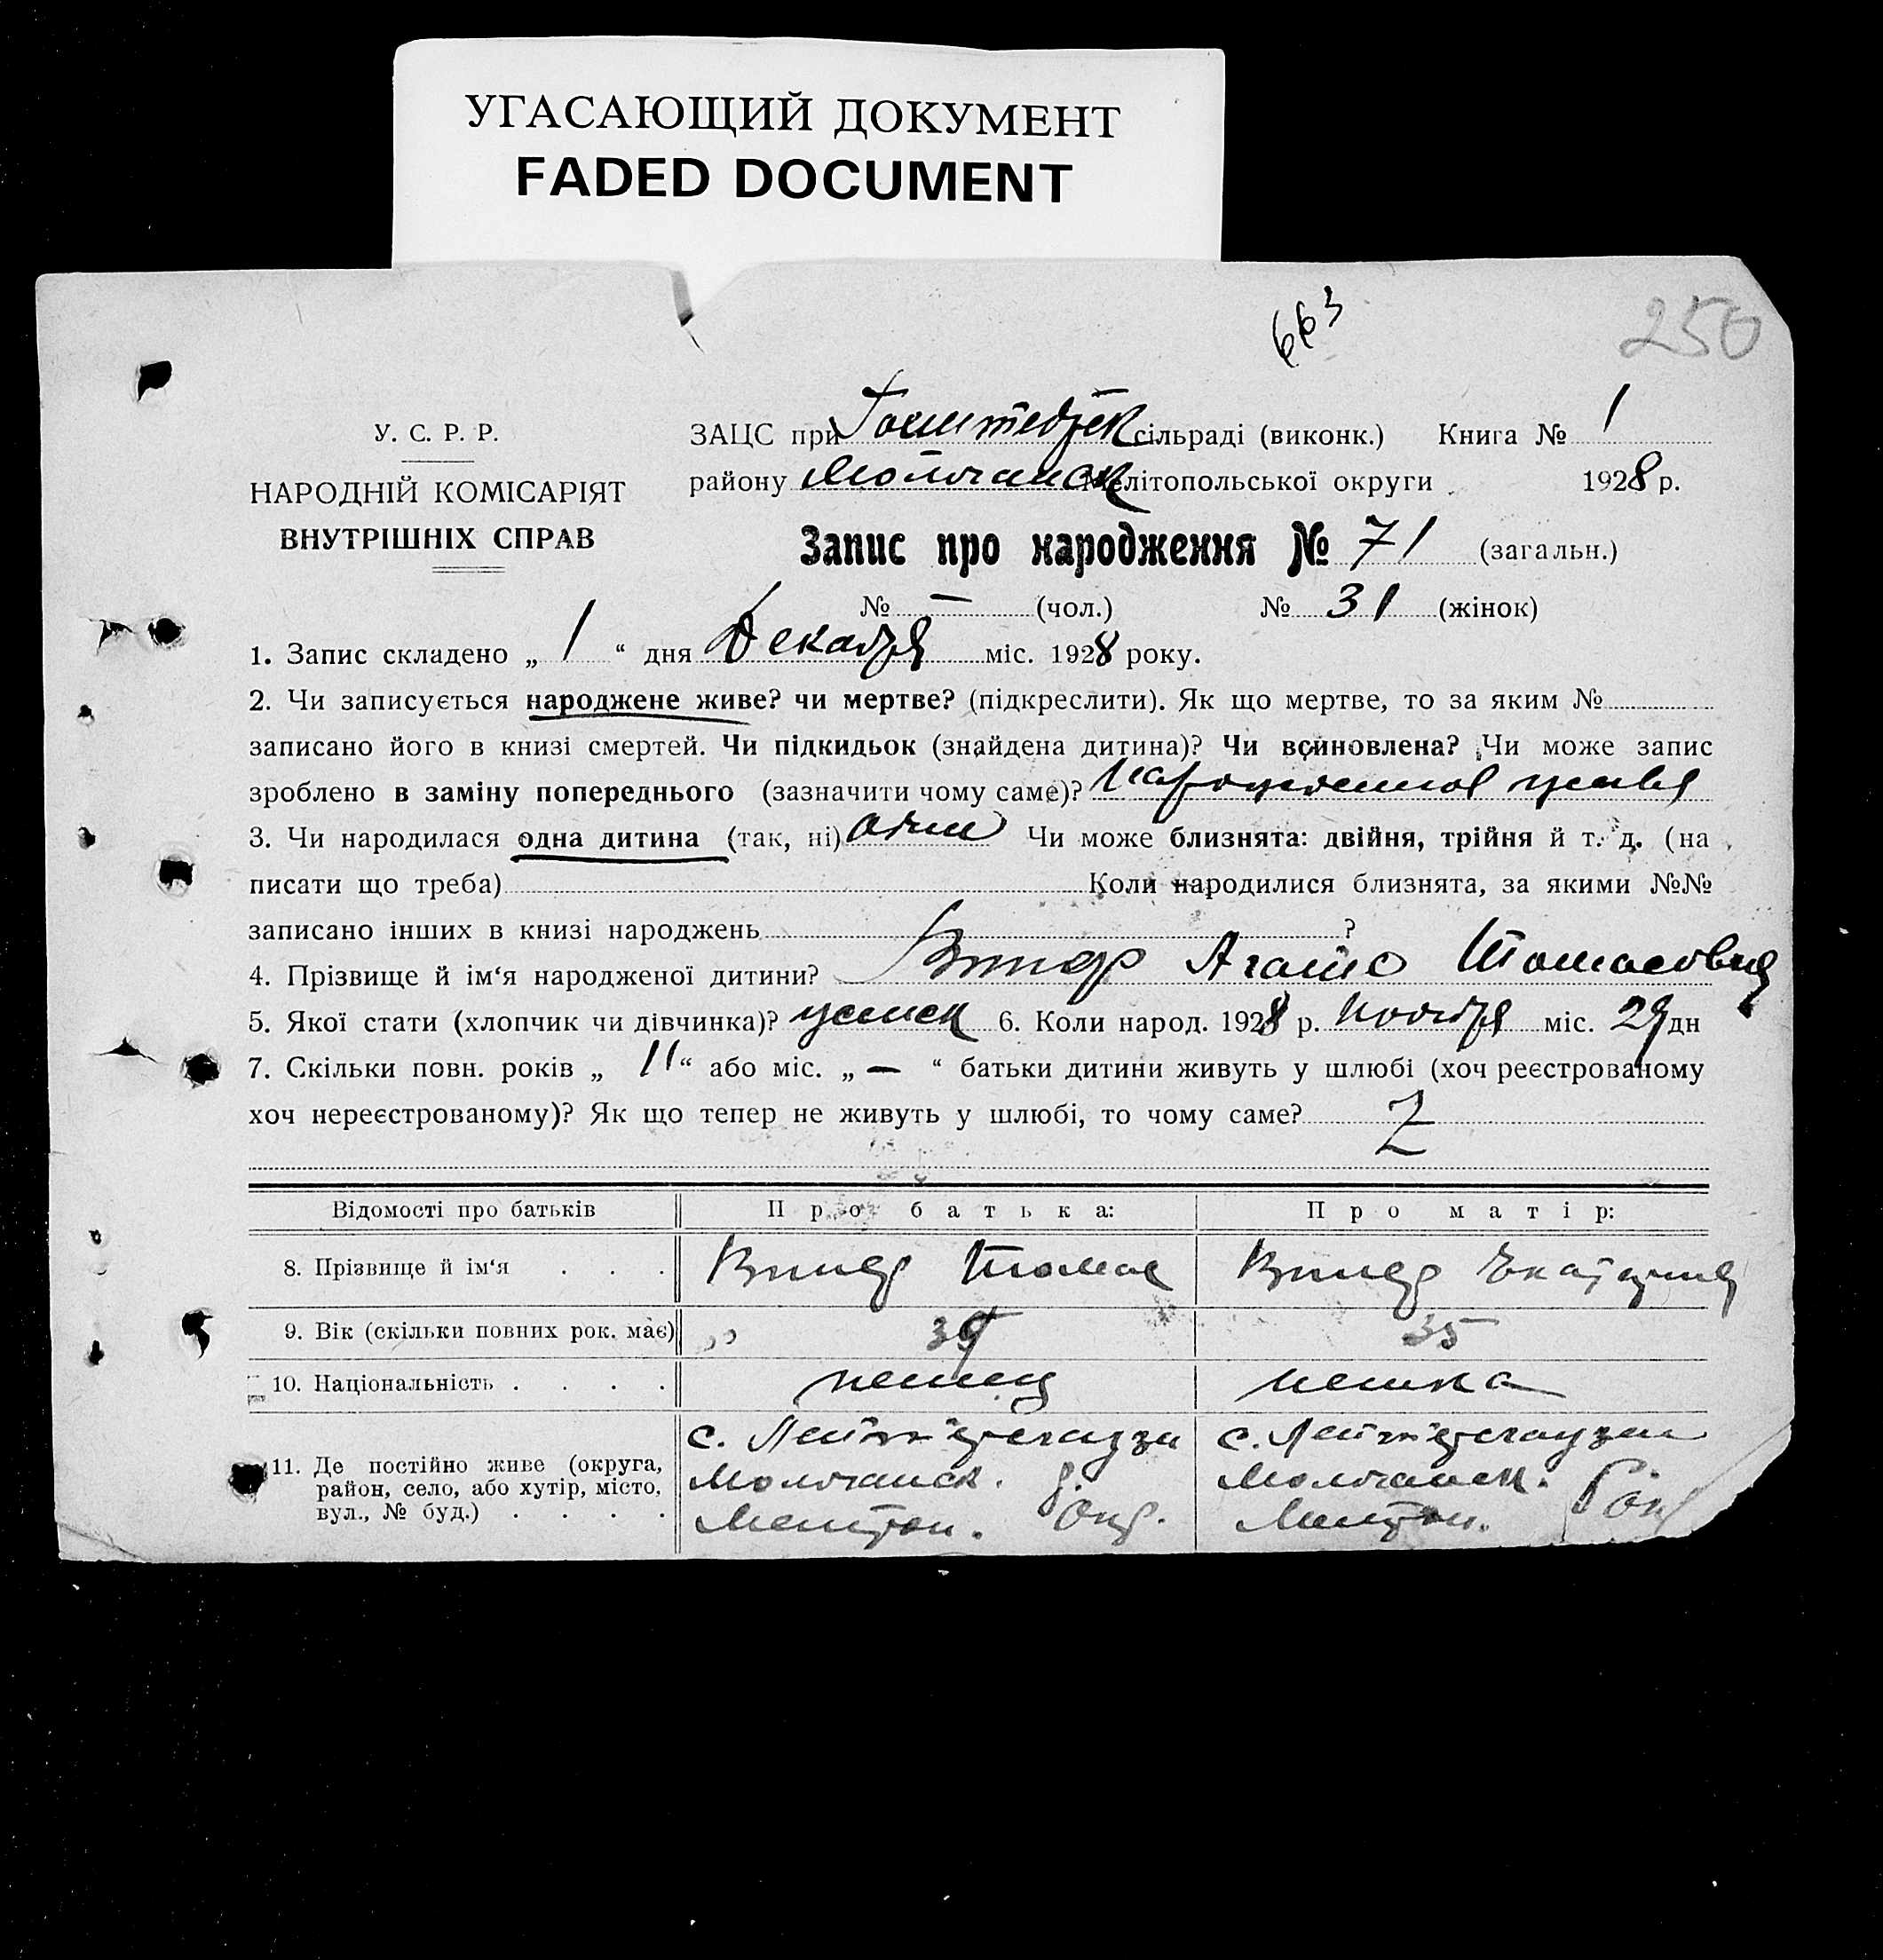 УГАСАЮЩИЙ ДОКУМЕНТ
FADED DOCUMENT
663
250
У. С. Р. Р.
НАРОДНІЙ КОМІСАРІЯТ
ВНУТРІШНІХ СПРАВ
ЗАЦС при Гоштедтск сільраді (виконк.) Книга № 1
району Молочанск Мелітопольської округи 1928 р.
Запис про народження № 71 (загальн.)
№ — (чол.) № 31 (жінок)
1. Запис складено „ 1 “ дня Декабря міс. 1928 року.
2. Чи записується народжене живе? чи мертве? (підкреслити). Як що мертве, то за яким №
записано його в книзі смертей. Чи підкидьок (знайдена дитина)? Чи всиновлена? Чи може запис
зроблено в заміну попереднього (зазначити чому саме)?
3. Чи народилася одна дитина (так, ні) один Чи може близнята: двійня, трійня й т. д. (на
писати що треба) Коли народилися близнята, за якими №№
записано інших в книзі народжень ?
4. Прізвище й ім‘я народженої дитини? Томасовна
5. Якої стати (хлопчик чи дівчинка)? женск 6. Коли народ. 1928 р. Ноября міс. 29 дн
7. Скільки повн. років „ 11 “ або міс. „ — “ батьки дитини живуть у шлюбі (хоч реєстрованому
хоч нереєстрованому)? Як що тепер не живуть у шлюбі, то чому саме? Z
Відомості про батьків Про батька: Про матір:
8. Прізвище й ім‘я . . . Томас Екатерина
9. Вік (скільки повних рок. має) 39 35
10. Національність . . . . немец немка
11. Де постійно живе (округа, район, село, або хутір, місто, вул., № буд.) . . . .
с. Лейтерсгаузен с. Лейтерсгаузен
Молочанск. р. Молочанск. р
Мелитоп. Окр. Мелитоп. Ок